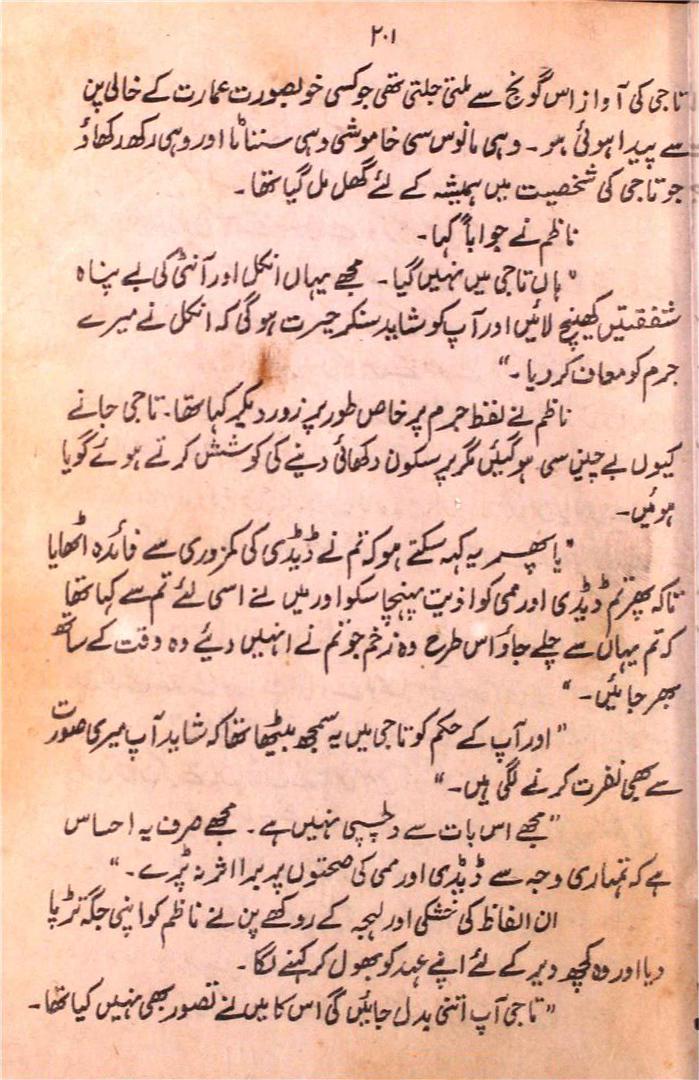 ۲۰۱
تاجی کی آواز اس گونج سے ملتی جلتی تھی جو کسی خوبصورت عمارت کے خالی پن
سے پیدا ہوئی ہو۔ وہی مانوس سی خاموشی وہی سنناٹا اور وہی رکھ رکھاؤ
جو تاجی کی شخصیت میں ہمیشہ کے لئے گھل مل گیا تھا۔
ناظم نے جواباً کہا۔
"ہاں تاجی میں نہیں گیا۔ مجھے یہاں انکل اور آنٹی کی بے پناہ
شفقتیں کھینچ لائیں اور آپ کو شاید سنکر حیرت ہوگی کہ انکل نے میرے
جرم کو معاف کر دیا۔"
ناظم نے لفظ جرم پر خاص طور پر زور دیکر کہا تھا۔ تاجی جانے
کیوں بے چین سی ہو گئیں مگر پر سکون دکھائی دینے کی کوشش کرتے ہوئے گویا
ہوئیں۔
"یا پھر یہ کہہ سکتے ہو کہ تم نے ڈیڈی کی کمزوری سے فائدہ اٹھایا
تاکہ پھر تم ڈیڈی اور ممی کو اذیت پہنچا سکو اور میں نے اسی لئے تم سے کہا تھا
کہ تم یہاں سے چلے جاؤ اس طرح وہ زخم جو تم نے انہیں دیئے وہ وقت کے ساتھ
بھر جائیں۔"
"اور آپ کے حکم کو تاجی میں یہ سمجھ بیٹھا تھا کہ شاید آپ میری صورت
سے بھی نفرت کرنے لگی ہیں۔"
"مجھے اس بات سے دلچسپی نہیں ہے۔ مجھے صرف یہ احساس
ہے کہ تمہاری وجہ سے ڈیڈی اور ممی کی صحتوں پر برا اثر نہ پڑے۔"
ان الفاظ کی خشکی اور لہجہ کے روکھے پن نے ناظم کو اپنی جگہ تڑپا
دیا اور وہ کچھ دیر کے لئے اپنے عہد کو بھول کر کہنے لگا۔
"تاجی آپ اتنی بدل جائیں گی اس کا میں نے تصور بھی نہیں کیا تھا۔